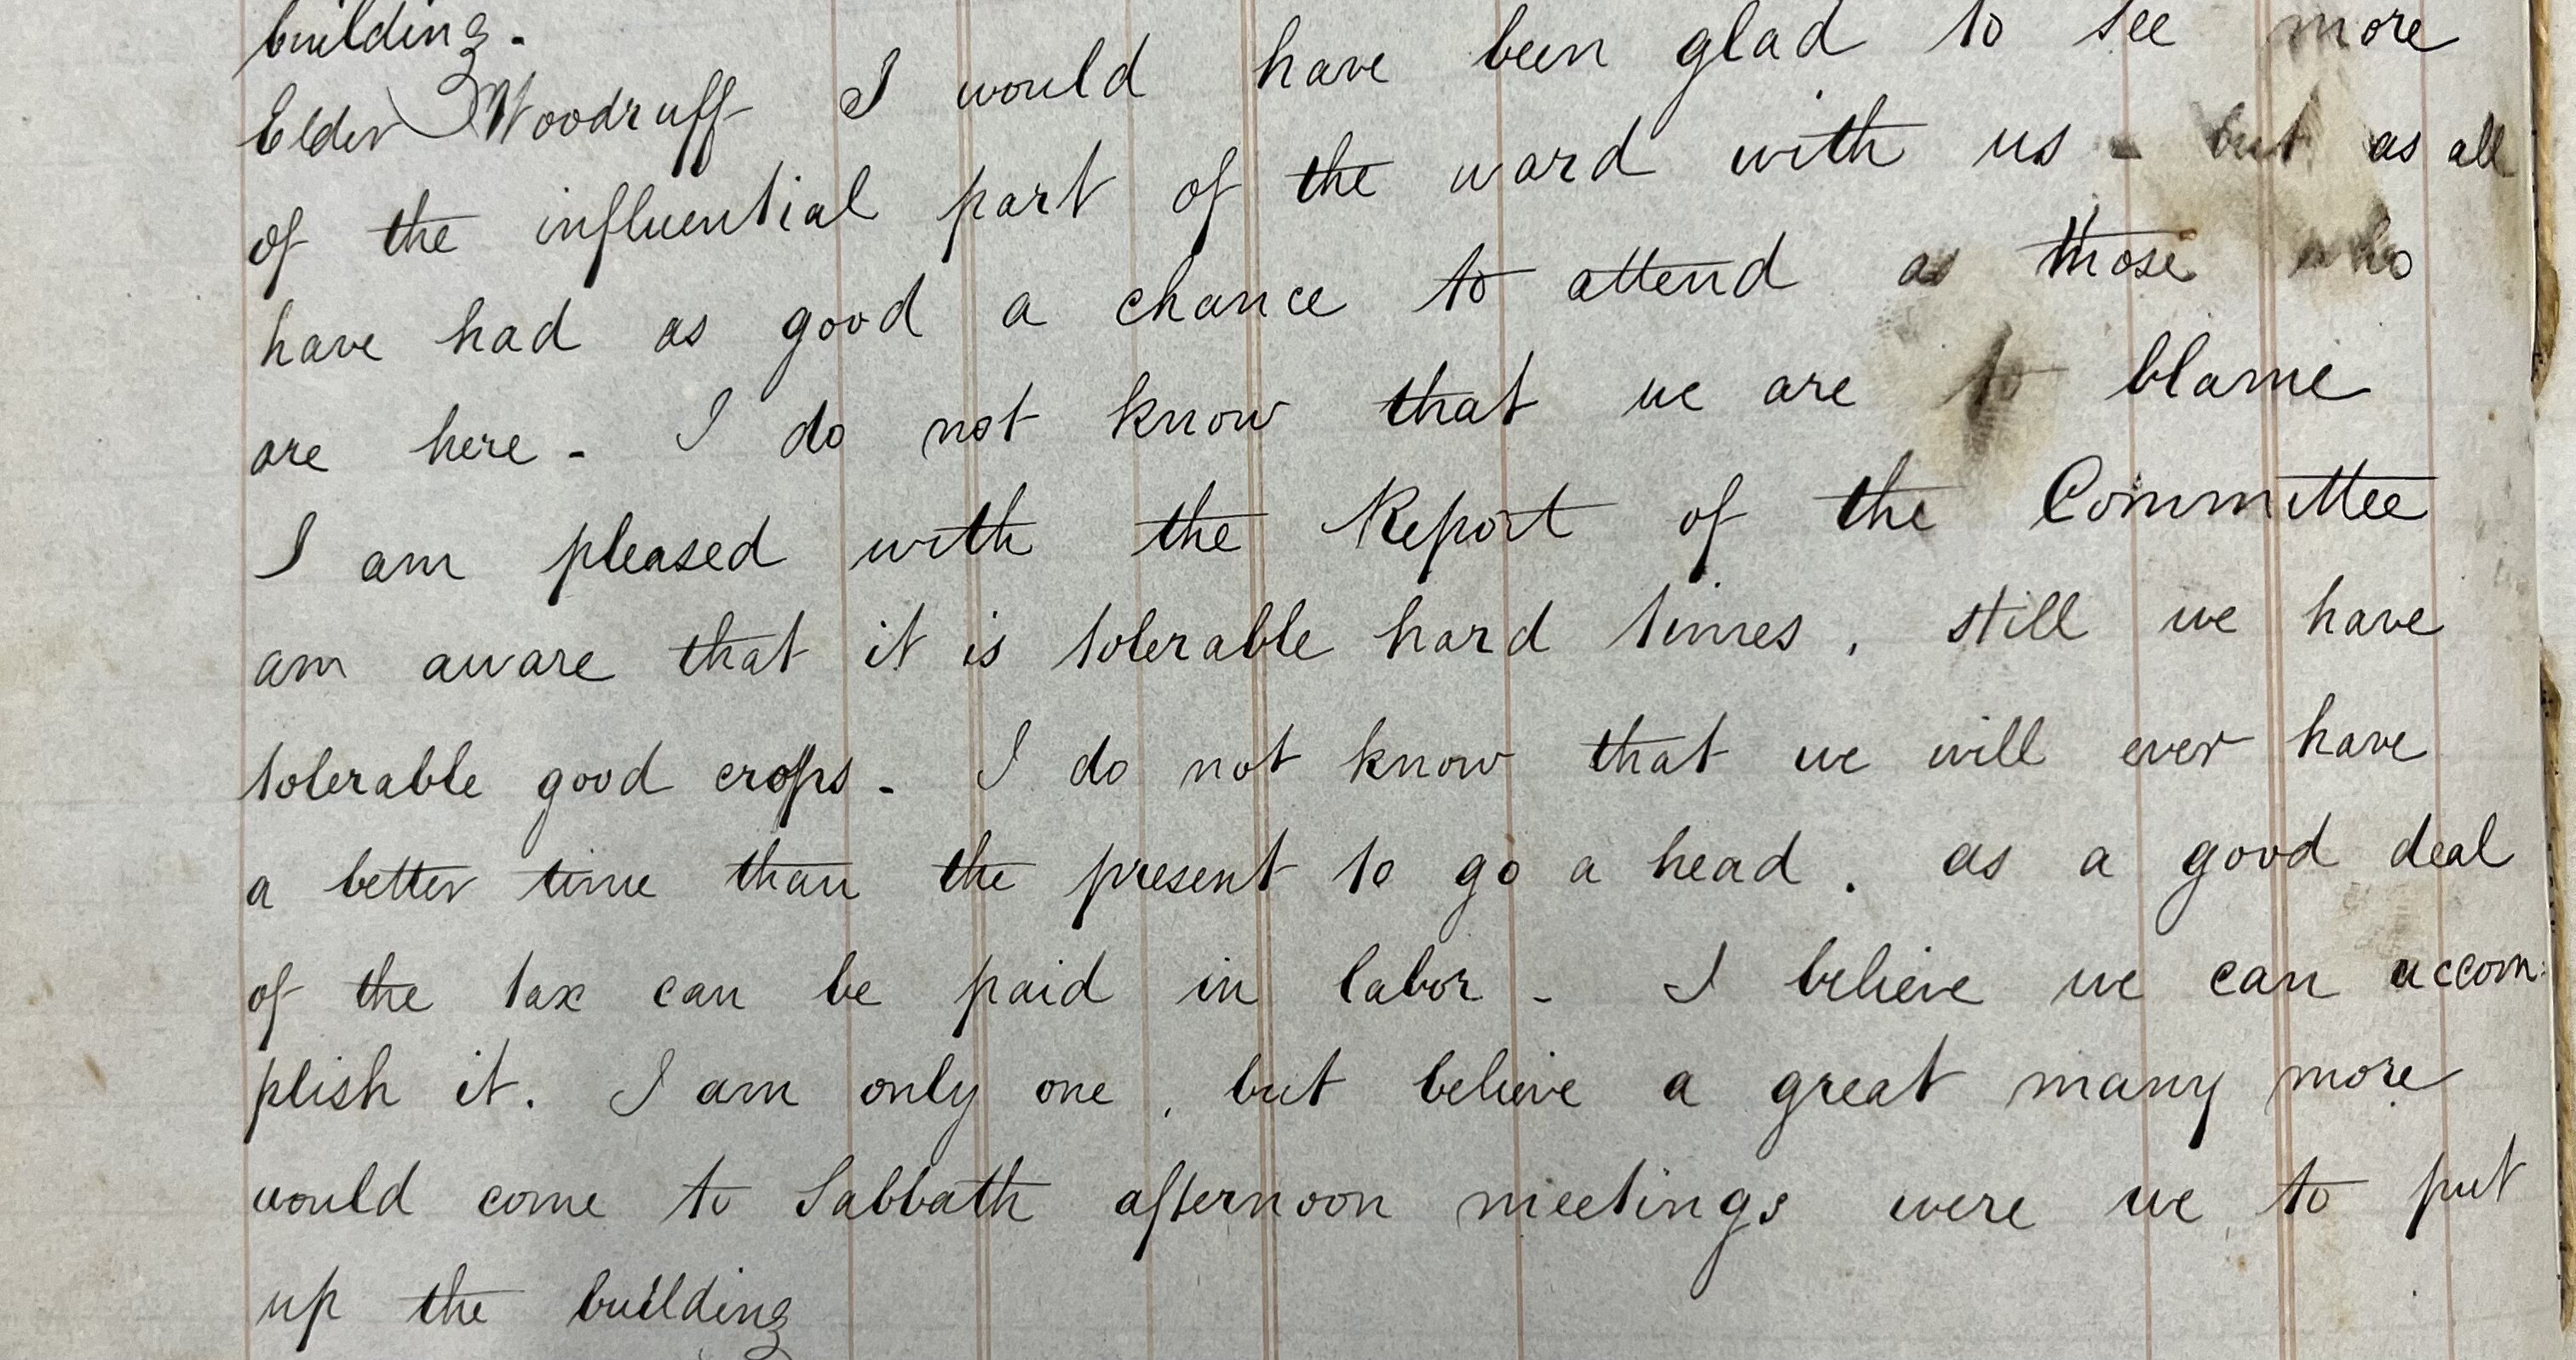 building.
Elder Woodruff I would have been glad to see more
of the influential part of the ward with us - but as all
have had as good a chance to attend as those who
are here - I do not know that we are to blame
I am pleased with the Report of the Committee
am aware that it is tolerable hard times, still we have
tolerable good crops - I do not know that we will ever have
a better time than the present to go a head. as a good deal
of the tax can be paid in labor - I believe we can accom:
plish it. I am only one, but believe a great many more
would come to Sabbath afternoon meetings were we to put
up the building